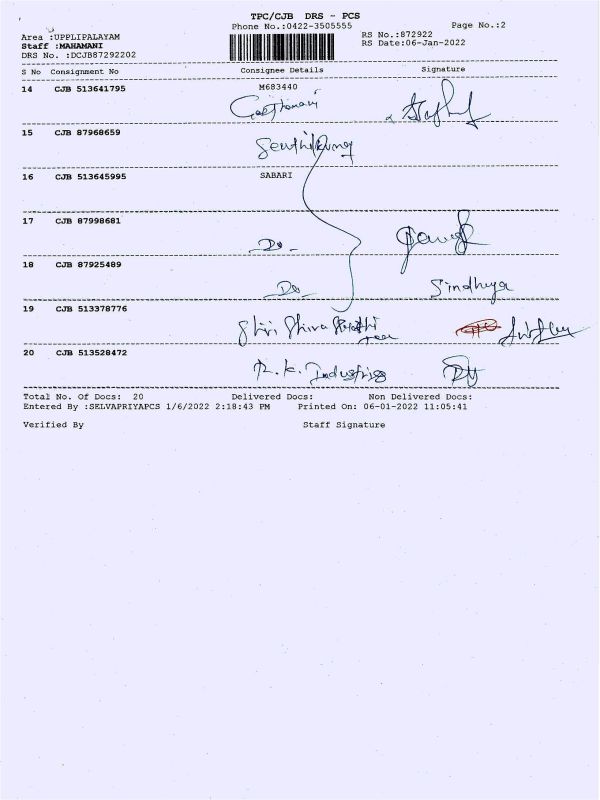 TPC/CJB DRS - PCS
Phone No.:0422-3505555 Page No.:2
Area :UPPLIPALAYAM RS No.:872922
Staff :MAHAMANI RS Date:06-Jan-2022
DRS No. :DCJB87292202
S No Consignment No Consignee Details Signature
14 CJB 513641795 M683440
15 CJB 87968659
16 CJB 513645995 SABARI
17 CJB 87998681 Do
18 CJB 87925489 Do Sindhuya
19 CJB 513378776 Shri Shiva
20 CJB 513528472 R.K. Industries
Total No. Of Docs: 20 Delivered Docs: Non Delivered Docs:
Entered By :SELVAPRIYAPCS 1/6/2022 2:18:43 PM Printed On: 06-01-2022 11:05:41
Verified By Staff Signature